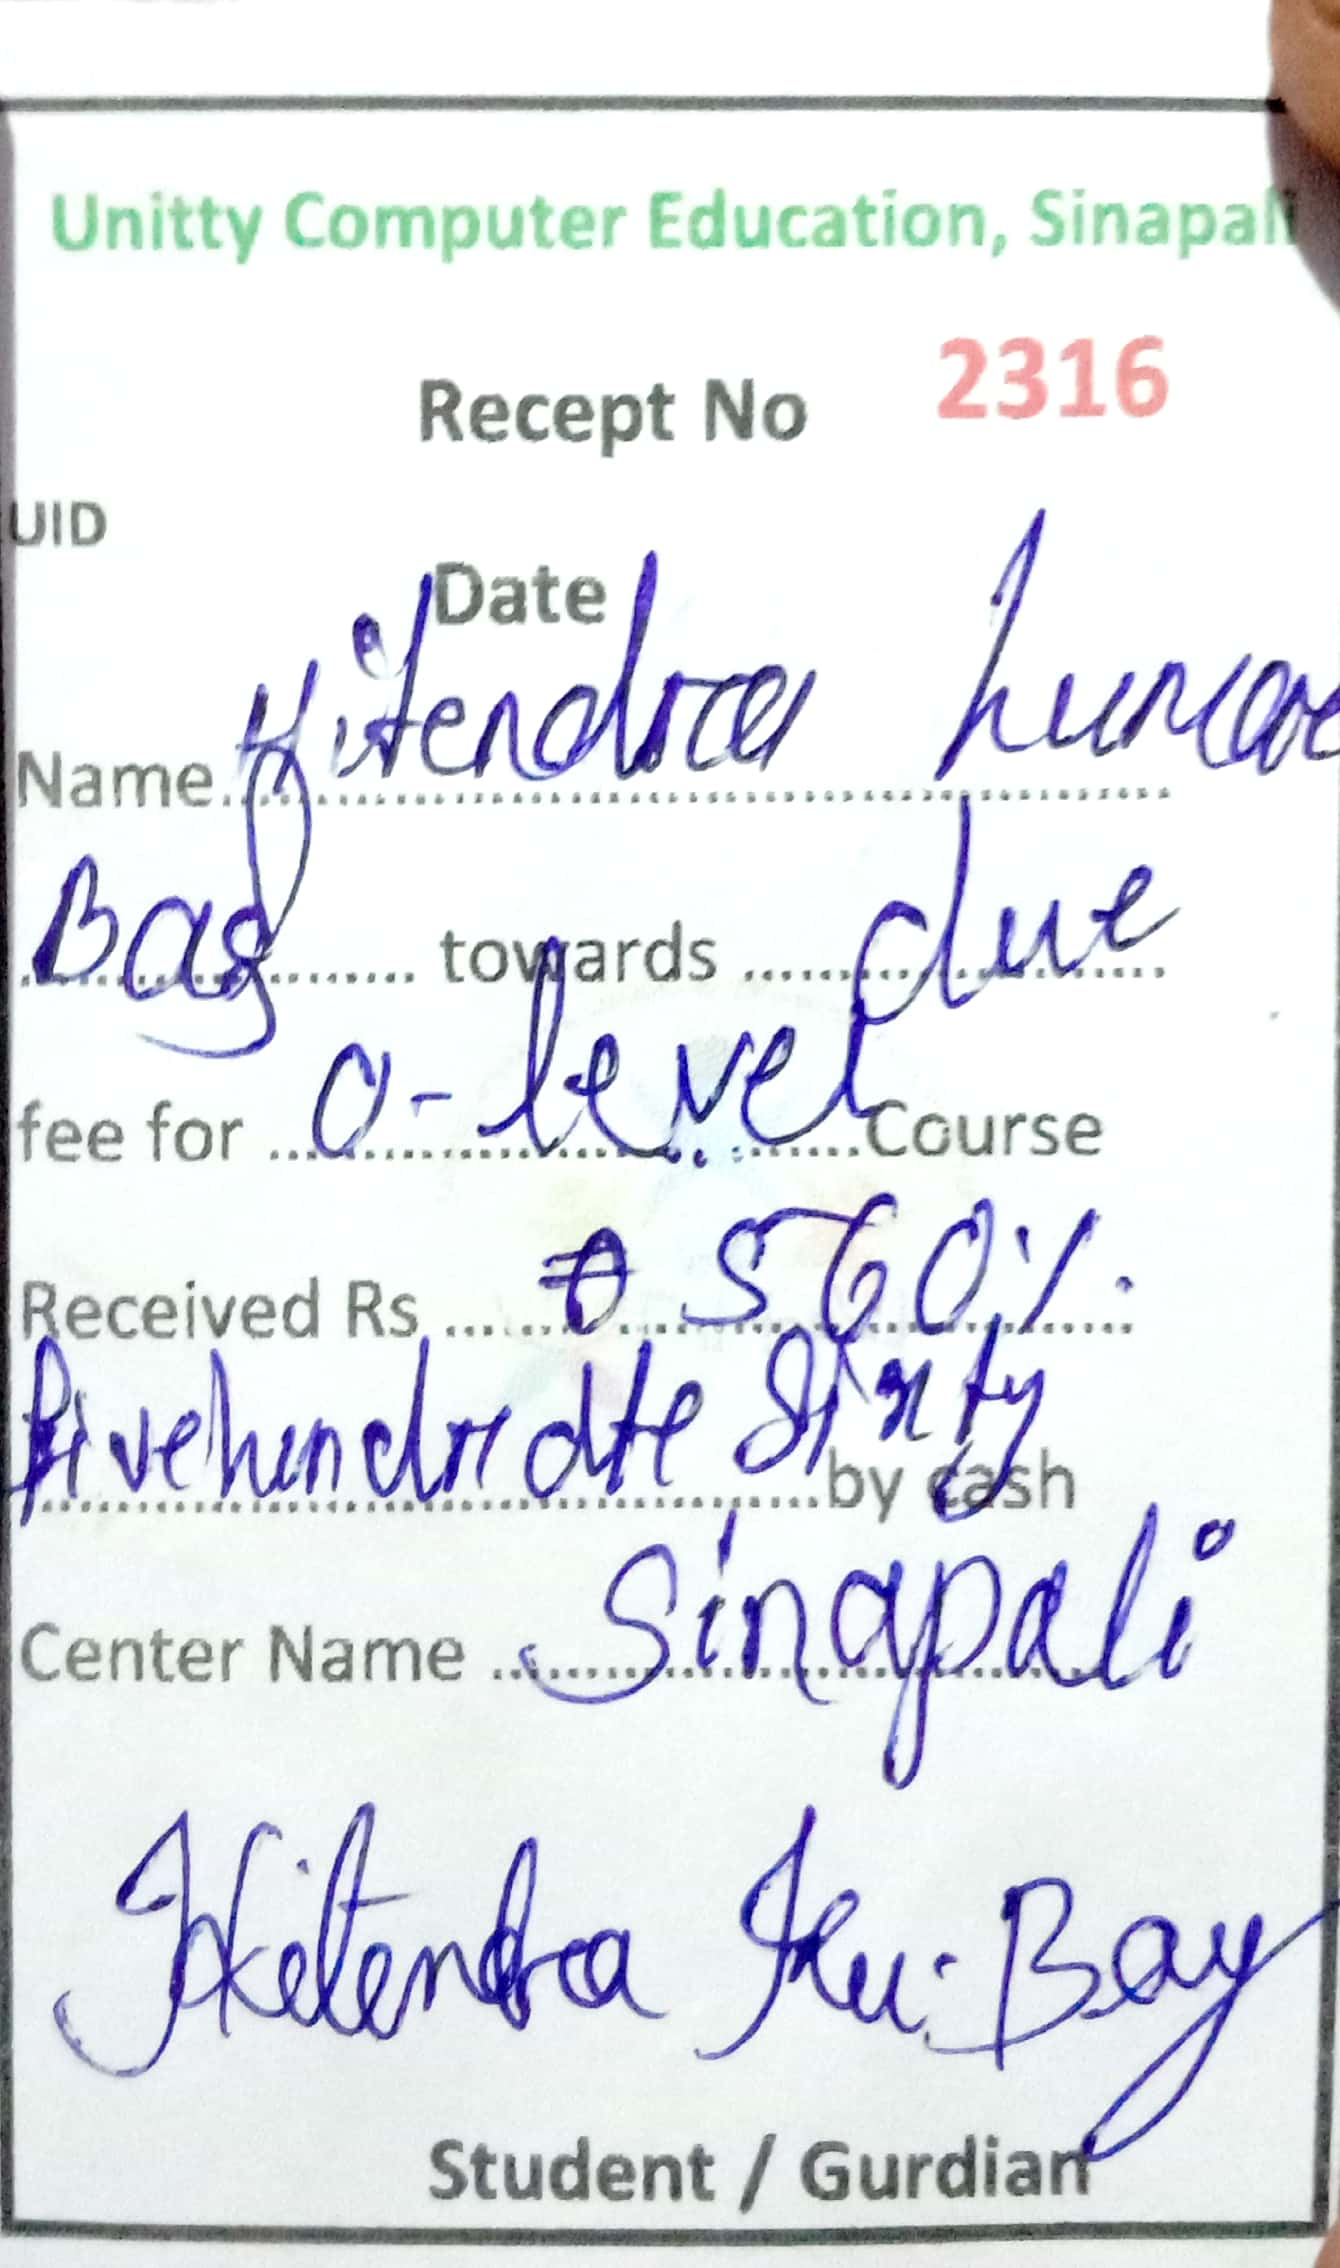 Unitty Computer Education, Sinapali
Recept No 2316
UID
Date
Name. Hitendra kumar
Bag towards due
fee for O-level Course
Received Rs 560/.
Fivehundred Sixty by cash
Center Name Sinapali
Hitendra Ku. Bag
Student / Gurdian